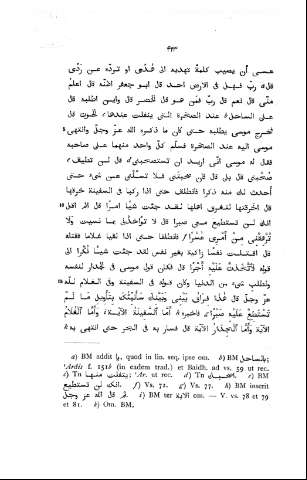 عسى ان يصيب كلمة تهديه الى هُدًى او تردّه عن رَدًى
قال ربّ فهل فى الارض احد قال ابو جعفر اظنّه قال اعلمُ
منّى قال نعم قال ربّ فمَن هو قال الخضر قال واين اطلبه قال
على الساحل عند الصخرة التى ينفلت عندها الحوت قال
فخرج موسى يطلبه حتى كان ما ذكره الله عزّ وجلّ وانتهى
موسى اليه عند الصخرة فسلّم كلّ واحد منهما على صاحبه
فقال له موسى انّى اريد ان تستصحبنى قال لن تطيق
صُحْبتى قال بلى قال فان صحبتنى فلا تسئلنى عن شىء حتى
أُحدث لك منه ذكرا فانطلقا حتى اذا ركبا فى السفينة خرقها
قال اخرقتها لتغرق اهلها لقد جئت شيئا امرا قال الم اقل
انك لن تستطيع معى صبرا قال لا تواخذنى بما نسيت ولا
تُرْهِقْنِى مِنْ أَمْرِى عُسْرًا فانطلقا حتى اذا لقيا غلاما فقتله
قال اقتلت نفسا زاكية بغير نفس لقد جئت شيئا نُكْرًا الى
قوله لَاتَّخَذْتَ عَلَيْهِ أَجْرًا قال فكان قول موسى فى الجدار لنفسه
ولطلب شىء من الدنيا وكان قوله فى السفينة وفى الغلام للّه
عزّ وجلّ قال هٰذَا فِرَاقُ بَيْنِى وَبَيْنِكَ سَأُنَبِّئُكَ بِتَأْوِيلِ مَا لَمْ
تَسْتَطِعْ عَلَيْهِ صَبْرًا فاخبره أَمَّا ٱلسَّفِينَةُ الآية وَأَمَّا ٱلْغُلَامُ
الآية وَأَمَّا ٱلْجِدَارُ الآية قال فسار به فى البحر حتى انتهى به
a) BM addit وا, quod in lin. seq. ipse om. b) BM بالساحل;
’Ardïs f. 151b (in eadem trad.) et Baidh. ad vs. 59 ut rec.
c) Tn ينفلت منها; ’Ar. ut rec. d) Tn e) BM
انك لن تستطيع. f) Vs. 72. g) Vs. 77. h) BM inserit
ثم قال الله عز وجل. i) BM ter الآية om. — V. vs. 78 et 79
et 81. k) Om. BM.